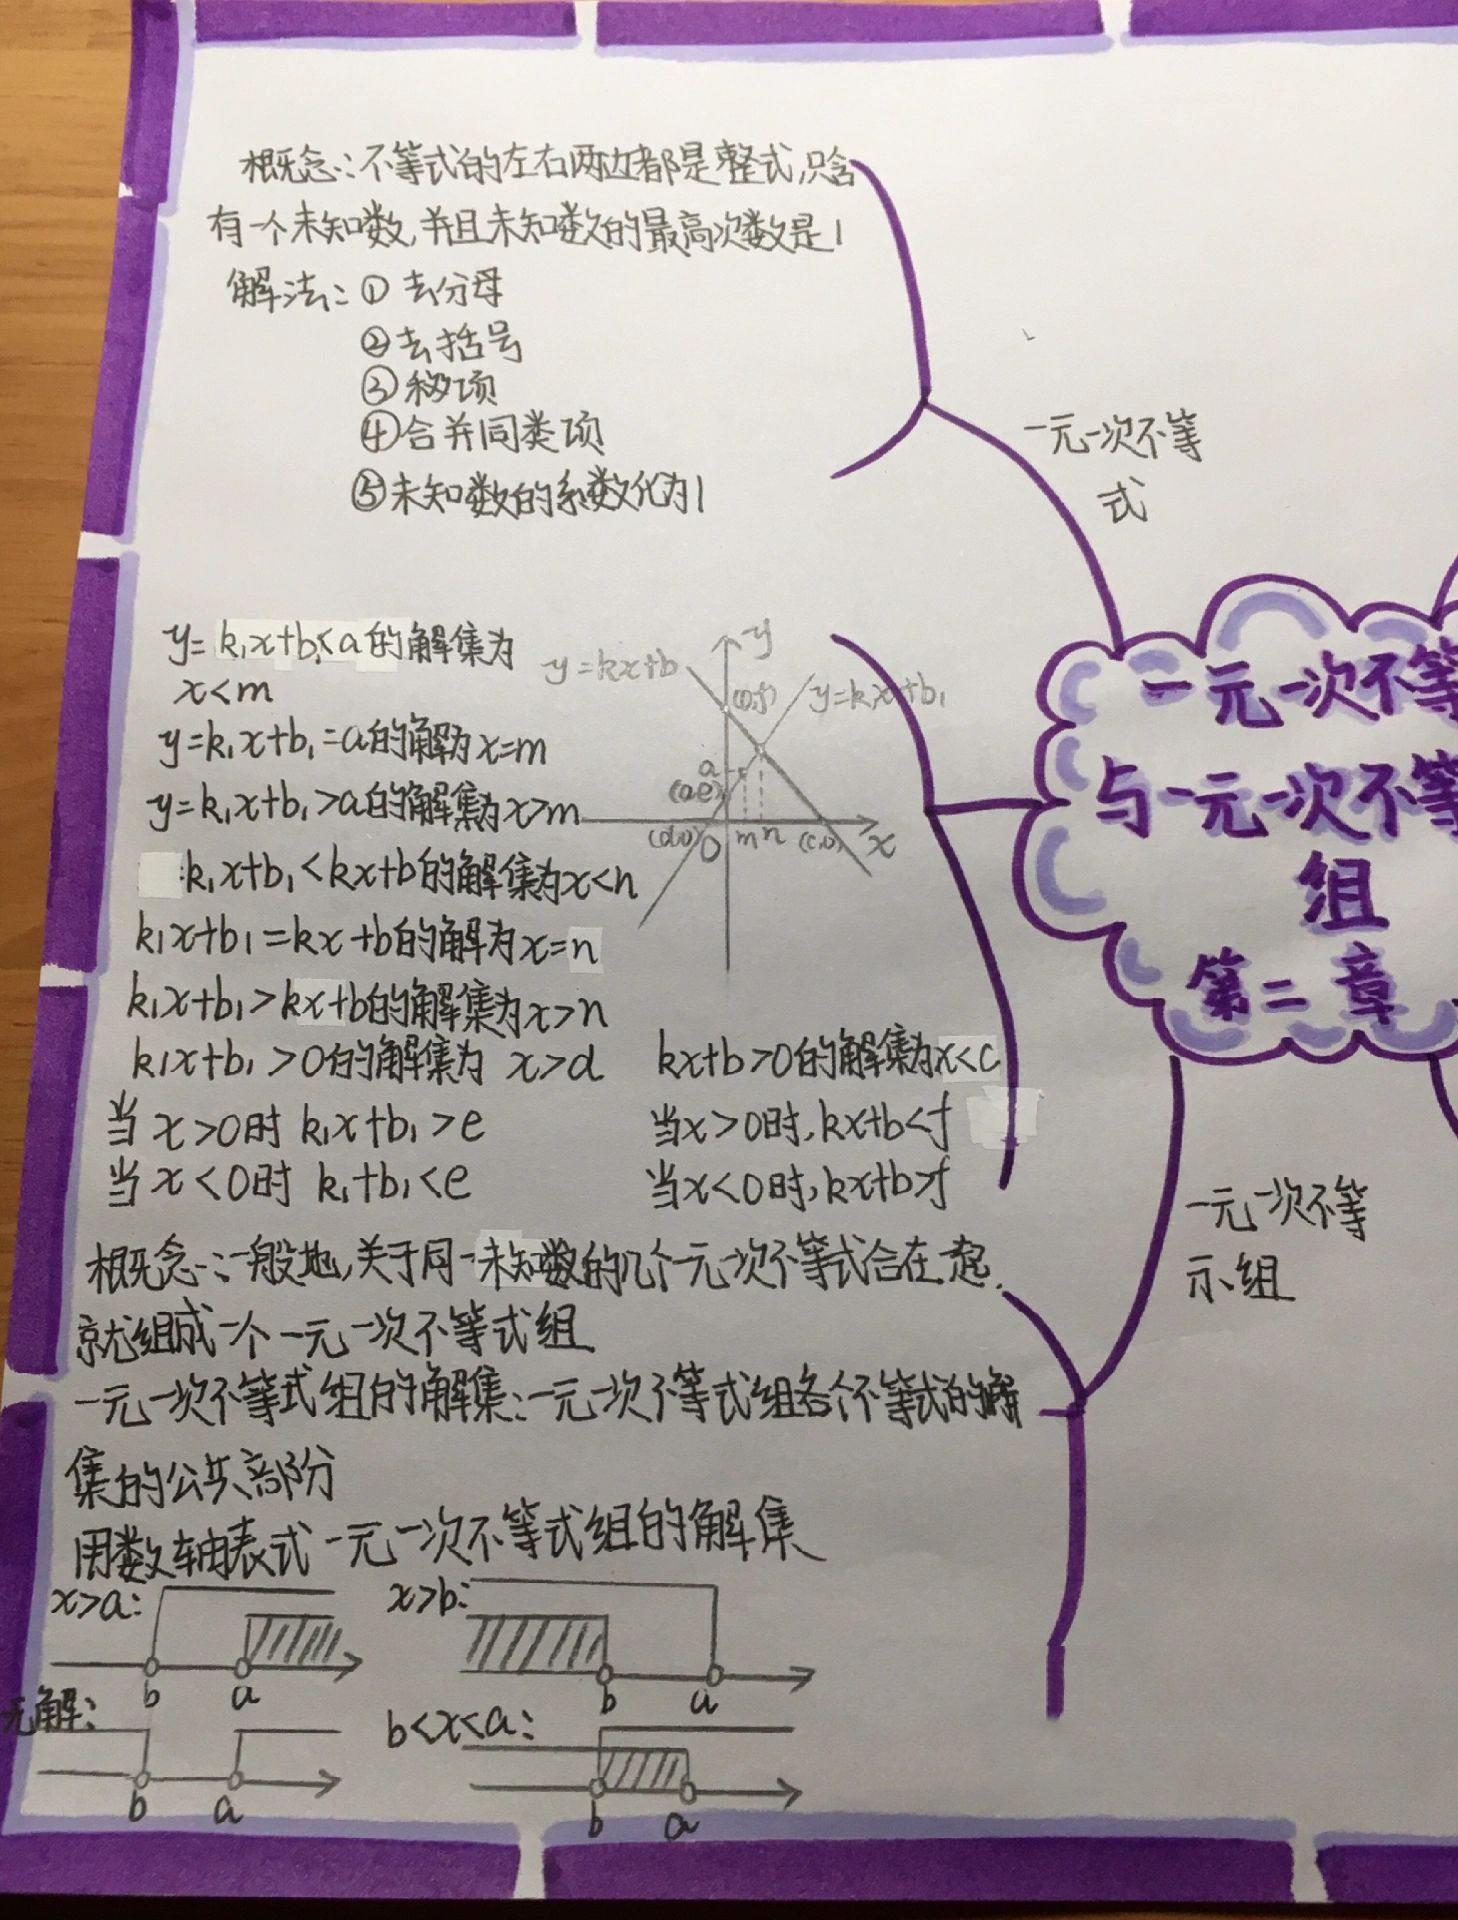 概念:不等式的左右两边都是整式,只含
有一个未知数,并且未知数的最高次数是1
解法:①去分母
②去括号
③移项
④合并同类项
⑤未知数的系数化为1
一元一次不等
式
y=k₁x+b₁<a的解集为
x<m
y=k₁x+b₁=a的解为x=m
y=k₁x+b₁>a的解集为x>m
k₁x+b₁<kx+b的解集为x<n
k₁x+b₁=kx+b的解为x=n
k₁x+b₁>kx+b的解集为x>n
k₁x+b₁>0的解集为 x>d kx+b>0的解集为x<c
当x>0时 k₁x+b₁>e 当x>0时,kx+b<f
当x<0时 k₁+b₁<e 当x<0时,kx+b>f
y=kx+b
y
(0,f)
y=k₁x+b₁
a
(0,e)
(d,0)
O
m n
(c,0)
x
一元一次不等
与一元一次不等
组
第二章
一元一次不等
示组
概念:一般地,关于同一未知数的几个一元一次不等式合在一起.
就组成一个一元一次不等式组
一元一次不等式组的解集:一元一次不等式组各个不等式的解
集的公共部分
用数轴表式一元一次不等式组的解集
x>a: x>b:
b a b a
无解: b<x<a:
b a b a